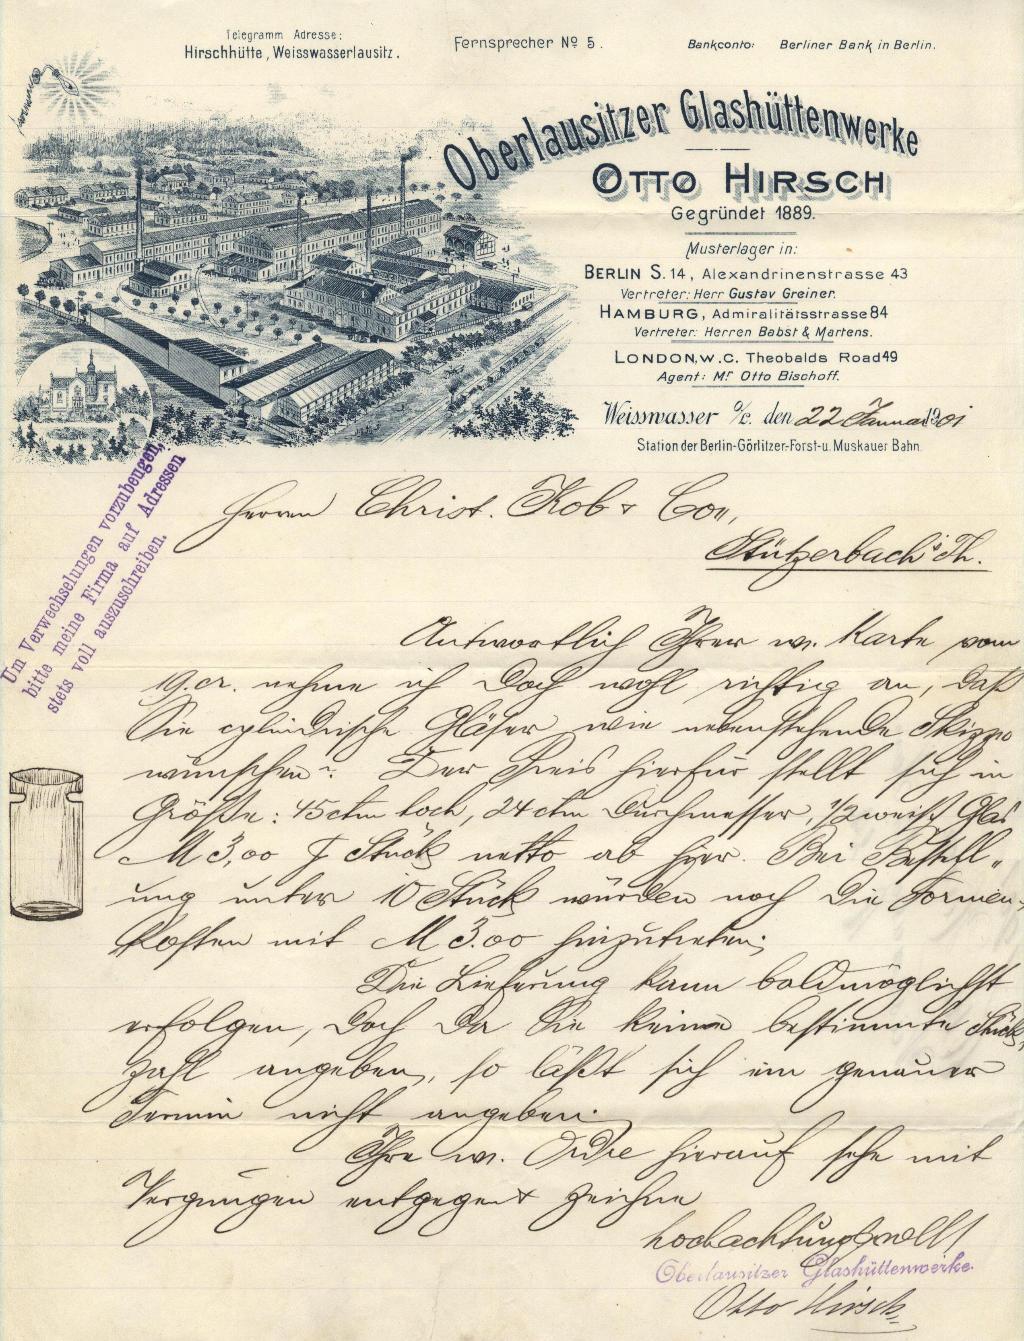 Telegramm Adresse:
Hirschhütte, Weisswasserlausitz.
Fernsprecher No 5.
Bankconto: Berliner Bank in Berlin.
Oberlausitzer Glashüttenwerke
OTTO HIRSCH
Gegründet 1889.
Musterlager in:
BERLIN S. 14, Alexandrinenstrasse 43
Vertreter: Herr Gustav Greiner.
HAMBURG, Admiralitätsstrasse 84
Vertreter: Herren Babst & Martens.
LONDON, W. C. Theobalds Road 49
Agent: Mr Otto Bischoff.
Weisswasser O/L. den 22 Januar 1901
Station der Berlin-Görlitzer-Forst-u. Muskauer Bahn.
Um Verwechselungen vorzubeugen,
bitte meine Firma auf Adressen
stets voll auszuschreiben.
Herren Christ. Kob & Co.,
Stützerbach i Th.
Antwortlich Ihrer w. Karte vom
19. cr. nehme ich doch wohl richtig an, daß
Sie cylindrische Gläser wie nebenstehende Skizze
wünschen. Der Preis hierfür stellt sich in
Größe: 45 ctm hoch, 24 ctm Durchmesser, 1/2 weiß Glas
M 3,00 Stück netto ab hier. Bei Bestell-
ung unter 10 Stück würden noch die Formen-
kosten mit M 3.00 hinzutreten.
Die Lieferung kann baldmöglichst
erfolgen, doch da Sie keine bestimmte Stück-
zahl angeben, so läßt sich ein genauer
Termin nicht angeben.
Ihre w. Ordre hierauf sehe mit
Vergnügen entgegen & zeichne
hochachtungsvoll
Oberlausitzer Glashüttenwerke.
Otto Hirsch